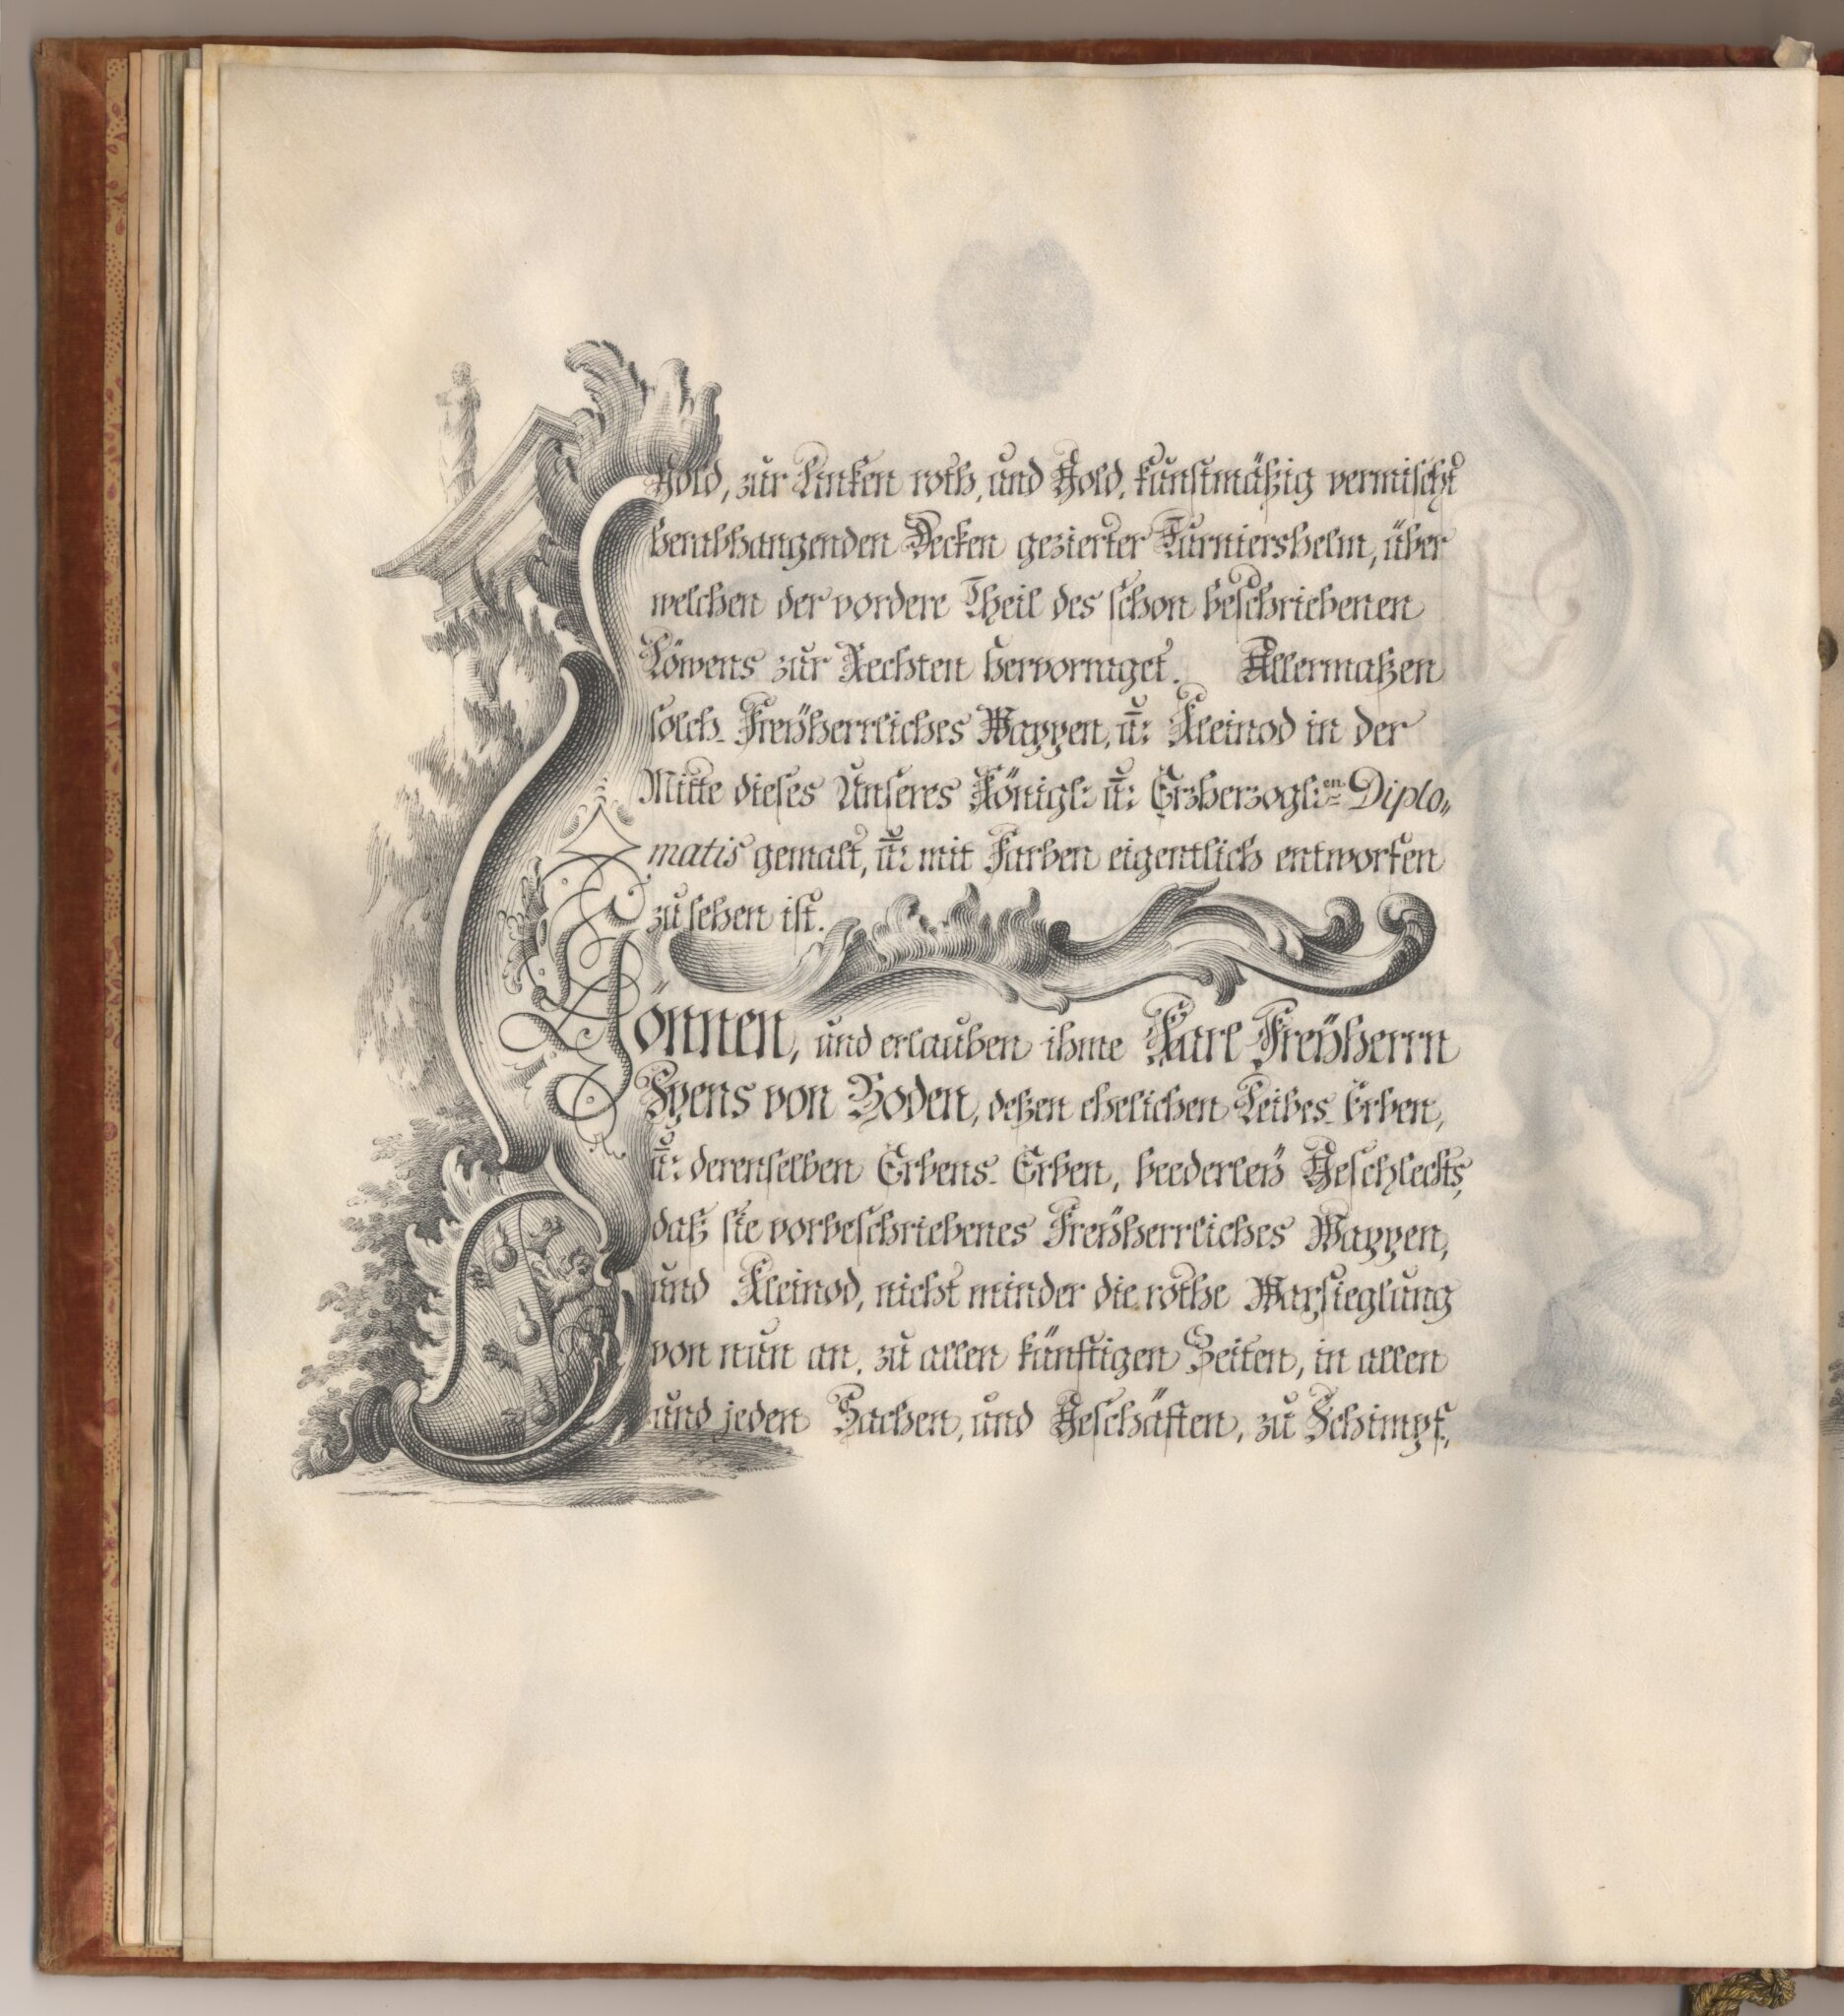 Gold, zur Linken roth, und Gold, kunstmäßig vermischt
herabhangenden Decken gezierter Turniershelm, über
welchen der vordere Theil des schon beschriebenen
Löwens zur Rechten hervorraget. Allermaßen
solch-Freÿherrliches Wappen, ū: Kleinod in der
Mitte dieses Unseres Königl: ū: Erzherzogl:en Diplo„
matis gemalt, ū: mit Farben eigentlich entworfen
zu sehen ist.
Gönnen, und erlauben ihme Karl Freÿherrn
Spens von Boden, deßen ehelichen Leibes-Erben,
ū: derenselben Erbens-Erben, beederleÿ Geschlechts,
daß sie vorbeschriebenes Freÿherrliches Wappen,
und Kleinod, nicht minder die rothe Waxsieglung
von nun an, zu allen künftigen Zeiten, in allen
und jeden Sachen, und Geschäften, zu Schimpf,